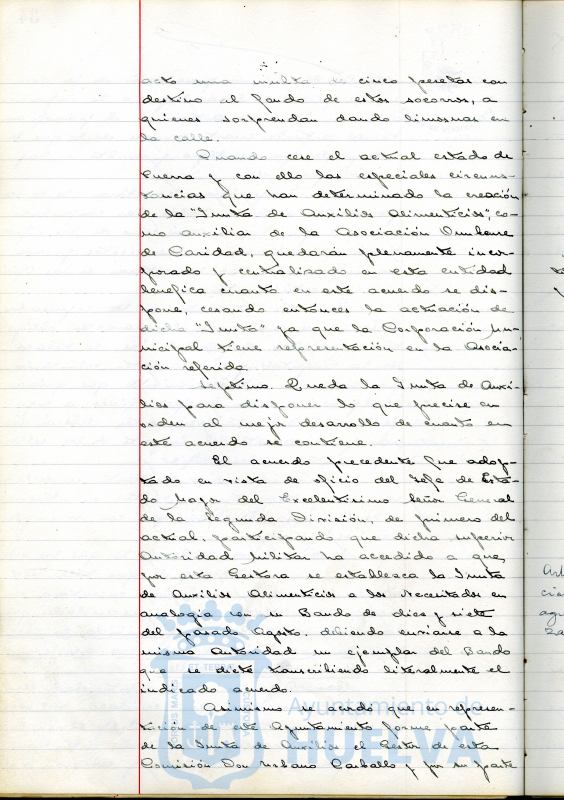 acto una multa de cinco pesetas con
destino al fondo de estos socorros, a
quienes sorprendan dando limosnas en
la calle.
Cuando cese el actual estado de
Guerra y con ello las especiales circuns-
tancias que han determinado la creación
de la "Junta de Auxilios Alimenticios", co-
mo auxiliar de la Asociación Onubense
de Caridad, quedarán plenamente incor-
porado y centralizado en esta entidad
benéfica cuanto en este acuerdo se dis-
pone, cesando entonces la actuación de
dicha "Junta" ya que la Corporación Mu-
nicipal tiene representación en la Asocia-
ción referida.
Septimo. Queda la Junta de Auxi-
lios para disponer lo que precise en
orden al mejor desarrollo de cuanto en
este acuerdo se contiene.
El acuerdo precedente fue adop-
tado en vista de oficio del Jefe de Esta-
do Mayor del Excelentísimo Señor General
de la Segunda División, de primero del
actual, participando que dicha superior
Autoridad Militar ha accedido a que,
por esta Gestora se establezca la Junta
de Auxilios Alimenticios a los Necesitados en
analogia con su Bando de diez y siete
del pasado Agosto, debiendo enviarse a la
misma Autoridad un ejemplar del Bando
que se dicte transcribiendo literalmente el
indicado acuerdo.
Asimismo se acordó que en represen-
tación de este Ayuntamiento forme parte
de la Junta de Auxilios el Gestor de esta
Comisión Don Urbano Carballo y por su parte
Ayuntamiento de
HUELVA